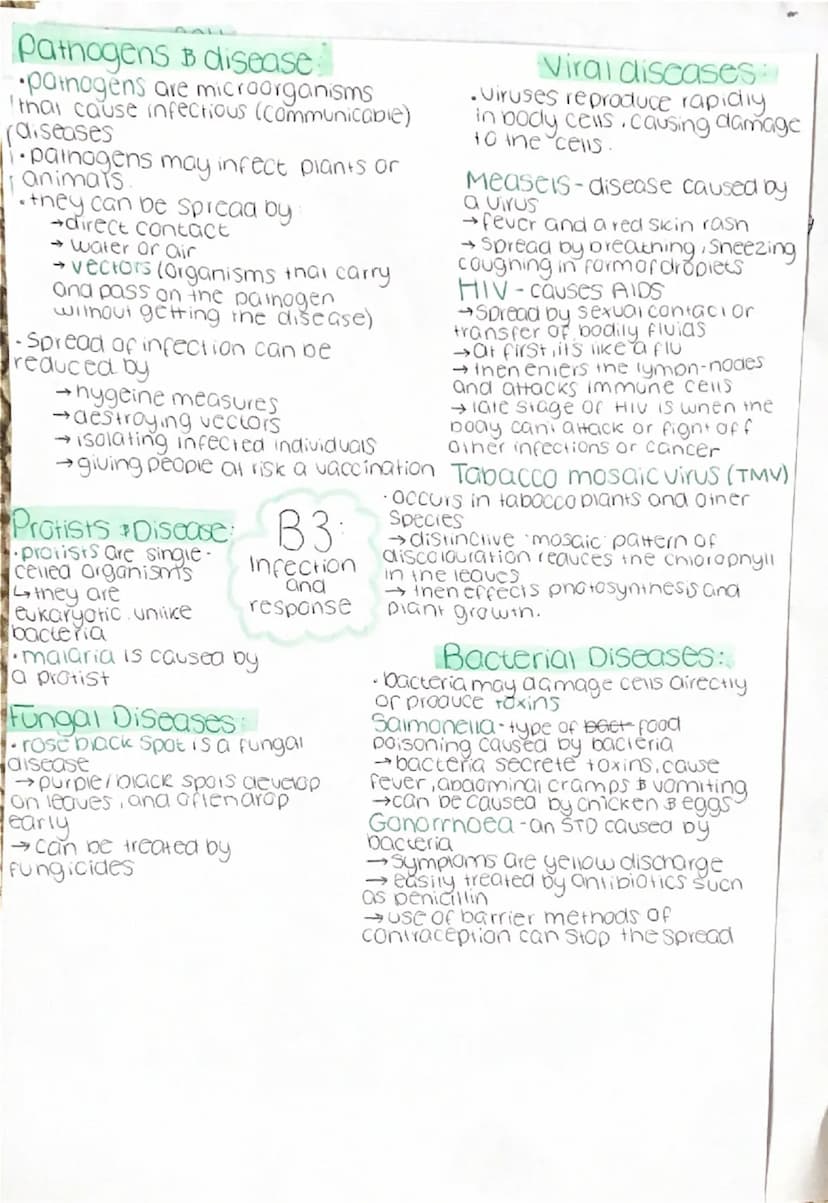 Pathogens & disease:
• pathogens are microorganisms
that cause infectious (communicable)
diseases
• pathogens may infect plants or
animals.
• they can be spread by:
→ direct contact
→ water or air
→ vectors (organisms that carry
and pass on the pathogen
without getting the disease)
• Spread of infection can be
reduced by
→ hygeine measures
→ destroying vectors
→ isolating infected individuals
→ giving people at risk a vaccination
Protists & Disease:
• protists are single-
celled organisms
↳ they are
eukaryotic, unlike
bacteria
• malaria is caused by
a protist
Fungal Diseases:
• rose black spot is a fungal
disease
→ purple/black spots develop
on leaves, and often drop
early
→ can be treated by
fungicides
B3:
Infection
and
response
Viral diseases:
• viruses reproduce rapidly
in body cells, causing damage
to the cells.
Measels - disease caused by
a virus
→ fever and a red skin rash
→ spread by breathing, sneezing
coughing in form of droplets
HIV - causes AIDS
→ Spread by sexual contact or
transfer of bodily fluids
→ at first, its like a flu
→ then enters the lymph-nodes
and attacks immune cells
→ late stage of HIV is when the
body cant attack or fight off
other infections or cancer
Tabacco mosaic virus (TMV)
• occurs in tabacco plants and other
species
→ distinctive 'mosaic' pattern of
discolouration reduces the chlorophyll
in the leaves
→ then effects photosynthesis and
plant growth.
Bacterial Diseases:
• bacteria may damage cells directly
or produce toxins
Salmonella - type of food
poisoning caused by bacteria
→ bacteria secrete toxins, cause
fever, abdominal cramps & vomiting
→ can be caused by chicken & eggs
Gonorrhoea - an STD caused by
bacteria
→ symptoms are yellow discharge
→ easily treated by antibiotics such
as penicillin
→ use of barrier methods of
contraception can stop the spread